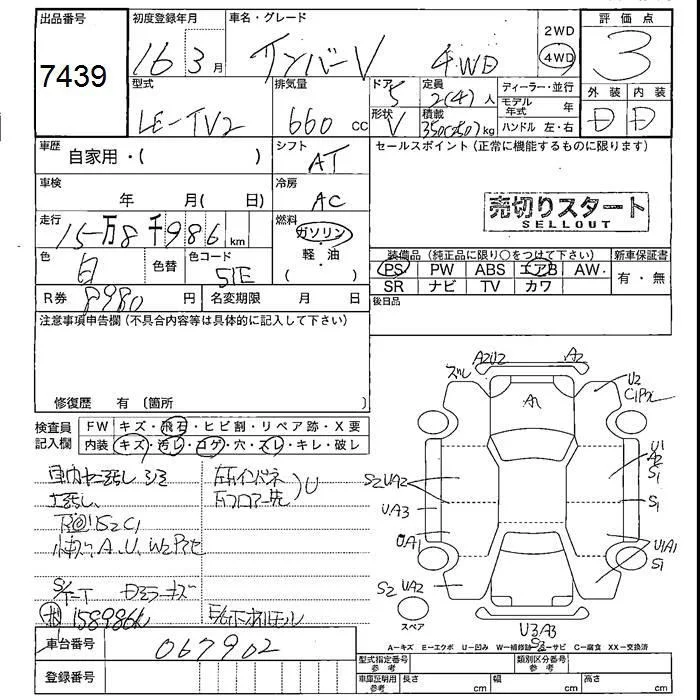 出品番号
7439
初度登録年月
16 3月
車名・グレード
サンバーV 4WD
2WD
4WD
評価点
3
型式
LE-TV2
排気量
660 cc
ドア
5
形状
V
定員
2(4)人
積載
350(250)kg
ディーラー・並行
モデル年式 年
ハンドル 左・右
外装 内装
D D
車歴
自家用・( )
シフト
AT
セールスポイント(正常に機能するものに限ります)
車検
年 月( 日)
冷房
AC
売切りスタート
SELLOUT
走行
15万8千986km
燃料
ガソリン
・
軽・油
( )
色
白
色替
色コード
51E
装備品(純正品に限り○をつけて下さい)
PS PW ABS エアB AW
SR ナビ TV カワ
新車保証書
有・無
R券
8980円
名変期限 月 日
後日品
注意事項申告欄(不具合内容等は具体的に記入して下さい)
修復歴 有(箇所 )
検査員記入欄
FW キズ・飛石・ヒビ割・リペア跡・X要
内装 キズ・汚レ・コゲ・穴・スレ・キレ・破レ
A2U2
A2
ズレ
A
U2
U1
A2
S1
S2UA2
S1
UA3
UA1
U1A1
S1
S2 UA2
スペア
U3A3
S2
左右インパネ
右フロアー先
U
A.U.W2
158986k
A-キズ E-エクボ U-凹み W-補修跡 S-サビ C-腐食 XX-交換済
車台番号
067902
登録番号
型式指定番号
参考
類別区分番号
参考
車庫証明用
参考
長さ cm
幅 cm
高さ cm